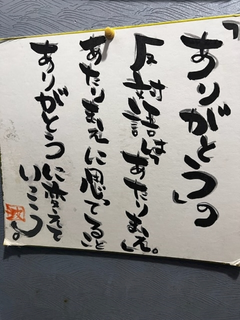 「ありがとう」の
反対語は「あたりまえ」。
あたりまえに思ってること
ありがとうに変えて
いっこう。